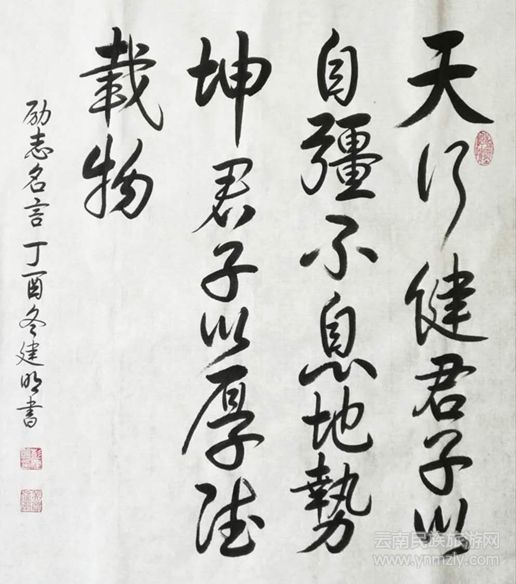 天行健君子以
自疆不息地勢
坤君子以厚德
載物
励志名言丁酉冬建明書
云南民族旅游网
www.ynmzly.com